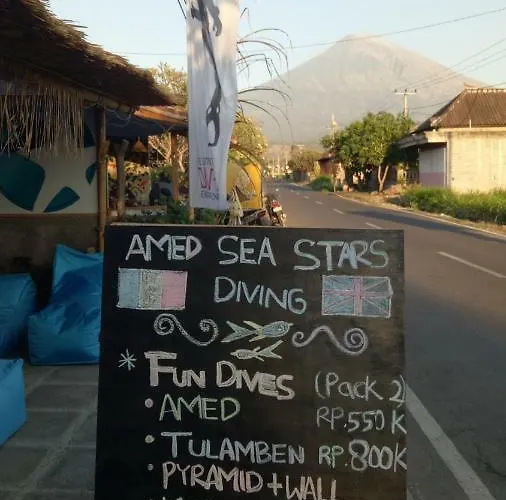 AMED SEA STARS
DIVING
FUN DIVES (PACK 2)
• AMED RP.550K
• TULAMBEN RP.800K
• PYRAMID + WALL